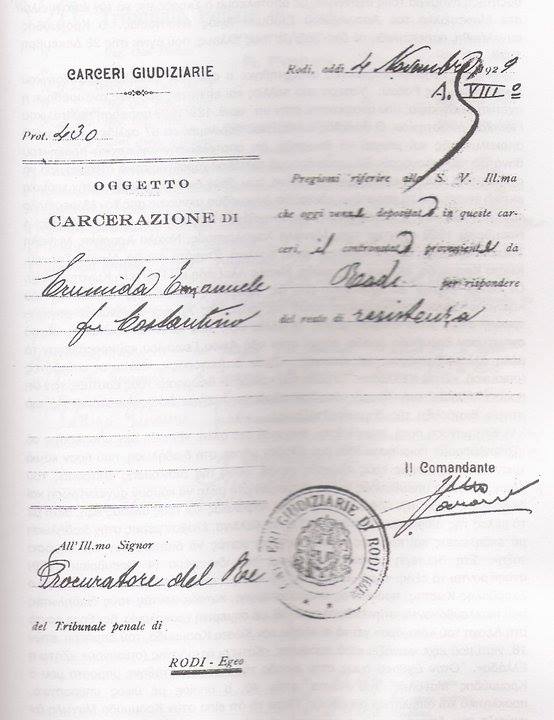 CARCERI GIUDIZIARIE
Prot. 430
OGGETTO
CARCERAZIONE DI
Emanuele
fu Costantino
All'Ill.mo Signor
Procuratore del Re
del Tribunale penale di
RODI - Egeo
Rodi, addì 4 Novembre 1929
A. VIII º
Pregiomi riferire alla S. V. Ill.ma
che oggi venne depositato in queste car-
ceri, il contronotato proveniente da
Rodi per rispondere
del reato di resistenza
Il Comandante
CARCERI GIUDIZIARIE DI RODI